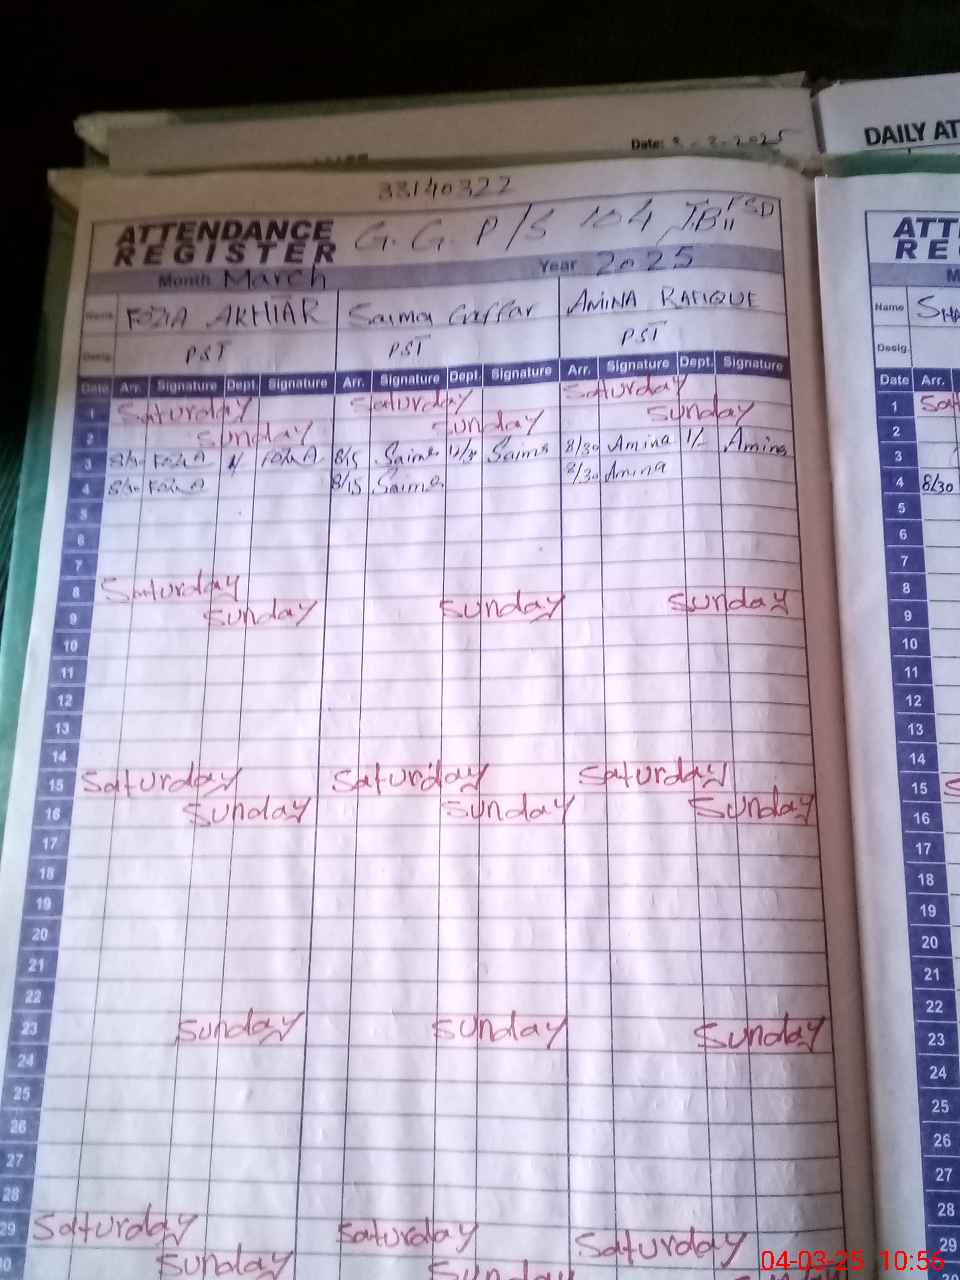 Date: 3-3-2025
DAILY AT
33140322
ATTENDANCE REGISTER G.G. P/S 104 JB II FSD
Month March Year 2025
Name FOZIA AKHTAR Saima Gaffar AMINA RAFIQUE
Desig. PST PST PST
Date Arr. Signature Dept. Signature Arr. Signature Dept. Signature Arr. Signature Dept. Signature
1 Saturday Saturday Saturday
2 Sunday Sunday Sunday
3 8/30 FOZIA 1/ FOZIA 8/15 Saima Saima 8/30 Amina 1/- Amina
4 8/30 FOZIA 8/15 Saima 8/30 Amina
5
6
7
8 Saturday
9 Sunday Sunday Sunday
10
11
12
13
14
15 Saturday Saturday Saturday
16 Sunday Sunday Sunday
17
18
19
20
21
22
23 Sunday Sunday Sunday
24
25
26
27
28
29 Saturday Saturday Saturday
30 Sunday Sunday
ATT
RE
M
Name SHA
Desig.
Date Arr.
1 Sat
2
3
4 8/30
5
6
7
8
9
10
11
12
13
14
15 S
16
17
18
19
20
21
22
23
24
25
26
27
28
29
04-03-25 10:56